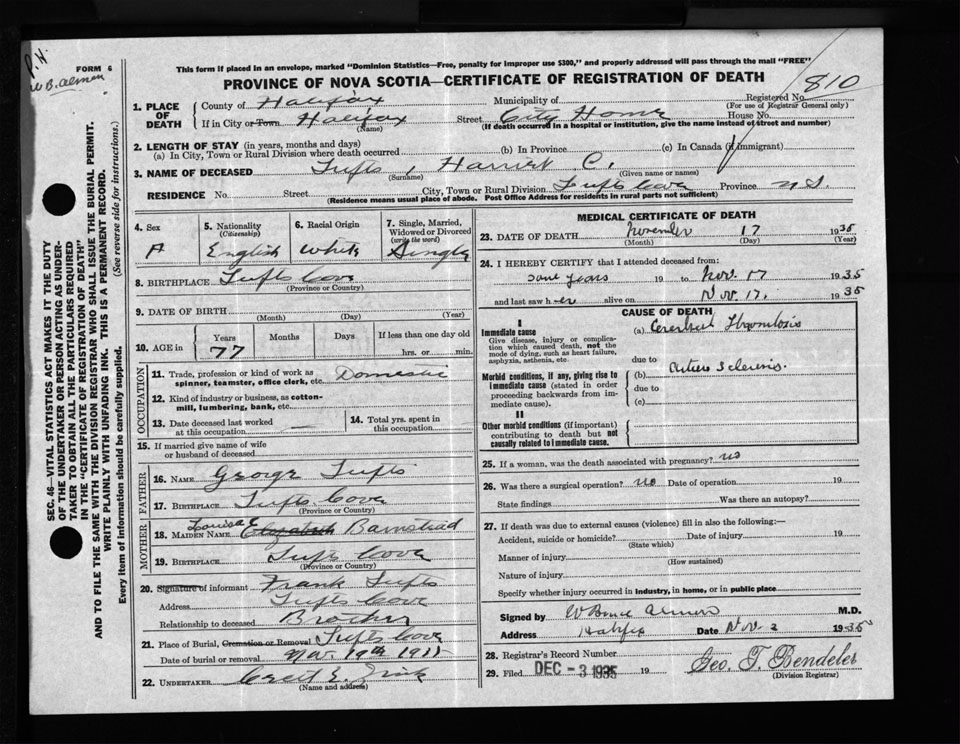 P. H.
W B. Almon
FORM 6
This form if placed in an envelope, marked "Dominion Statistics—Free, penalty for improper use $300," and properly addressed will pass through the mail "FREE"
PROVINCE OF NOVA SCOTIA—CERTIFICATE OF REGISTRATION OF DEATH
Registered No. 810
(For use of Registrar General only)
1. PLACE OF DEATH
County of Halifax Municipality of
If in City or Town Halifax Street City Home House No.
(Name) (If death occurred in a hospital or institution, give the name instead of street and number)
2. LENGTH OF STAY (in years, months and days)
(a) In City, Town or Rural Division where death occurred (b) In Province (c) In Canada (if immigrant)
3. NAME OF DECEASED Tufts, Harriet C.
(Surname) (Given name or names)
RESIDENCE No. Street City, Town or Rural Division Tufts Cove Province N.S.
(Residence means usual place of abode. Post Office Address for residents in rural parts not sufficient)
4. Sex
5. Nationality (Citizenship) English
6. Racial Origin White
7. Single, Married, Widowed or Divorced (write the word) Single
8. BIRTHPLACE Tufts Cove
(Province or Country)
9. DATE OF BIRTH
(Month) (Day) (Year)
10. AGE in Years 77 Months Days If less than one day old hrs. or min.
OCCUPATION
11. Trade, profession or kind of work as spinner, teamster, office clerk, etc. Domestic
12. Kind of industry or business, as cotton-mill, lumbering, bank, etc.
13. Date deceased last worked at this occupation —
14. Total yrs. spent in this occupation
15. If married give name of wife or husband of deceased
FATHER
16. NAME George Tufts
17. BIRTHPLACE Tufts Cove
(Province or Country)
MOTHER
Louisa E
18. MAIDEN NAME Elizabeth Barnstead
19. BIRTHPLACE Tufts Cove
(Province or Country)
20. Signature of informant Frank Tufts
Address Tufts Cove
Relationship to deceased Brother
21. Place of Burial, Cremation or Removal Tufts Cove
Date of burial or removal Nov. 19th
22. UNDERTAKER
(Name and address)
MEDICAL CERTIFICATE OF DEATH
23. DATE OF DEATH November 17 1935
(Month) (Day) (Year)
24. I HEREBY CERTIFY that I attended deceased from:
some years 19 to Nov. 17 1935
and last saw her alive on Nov. 17. 1935
CAUSE OF DEATH
I
Immediate cause
Give disease, injury or complication which caused death, not the mode of dying, such as heart failure, asphyxia, asthenia, etc.
(a) Cerebral Thrombosis
due to
Morbid conditions, if any, giving rise to immediate cause (stated in order proceeding backwards from immediate cause).
(b) Arterio Sclerosis.
due to
(c)
II
Other morbid conditions (if important) contributing to death but not causally related to immediate cause.
25. If a woman, was the death associated with pregnancy? no
26. Was there a surgical operation? no Date of operation 19
State findings Was there an autopsy?
27. If death was due to external causes (violence) fill in also the following:—
Accident, suicide or homicide? Date of injury 19
(State which)
Manner of injury
(How sustained)
Nature of injury
Specify whether injury occurred in industry, in home, or in public place
Signed by W Bruce Almon M.D.
Address Halifax Date Nov. 1935
28. Registrar's Record Number
29. Filed DEC - 3 1935 19 Geo. T. Bendeler
(Division Registrar)
SEC. 46—VITAL STATISTICS ACT MAKES IT THE DUTY
OF THE UNDERTAKER OR PERSON ACTING AS UNDER-
TAKER TO OBTAIN ALL THE PARTICULARS REQUIRED
IN THE "CERTIFICATE OF REGISTRATION OF DEATH"
AND TO FILE THE SAME WITH THE DIVISION REGISTRAR WHO SHALL ISSUE THE BURIAL PERMIT.
WRITE PLAINLY WITH UNFADING INK. THIS IS A PERMANENT RECORD.
Every item of information should be carefully supplied. (See reverse side for instructions.)